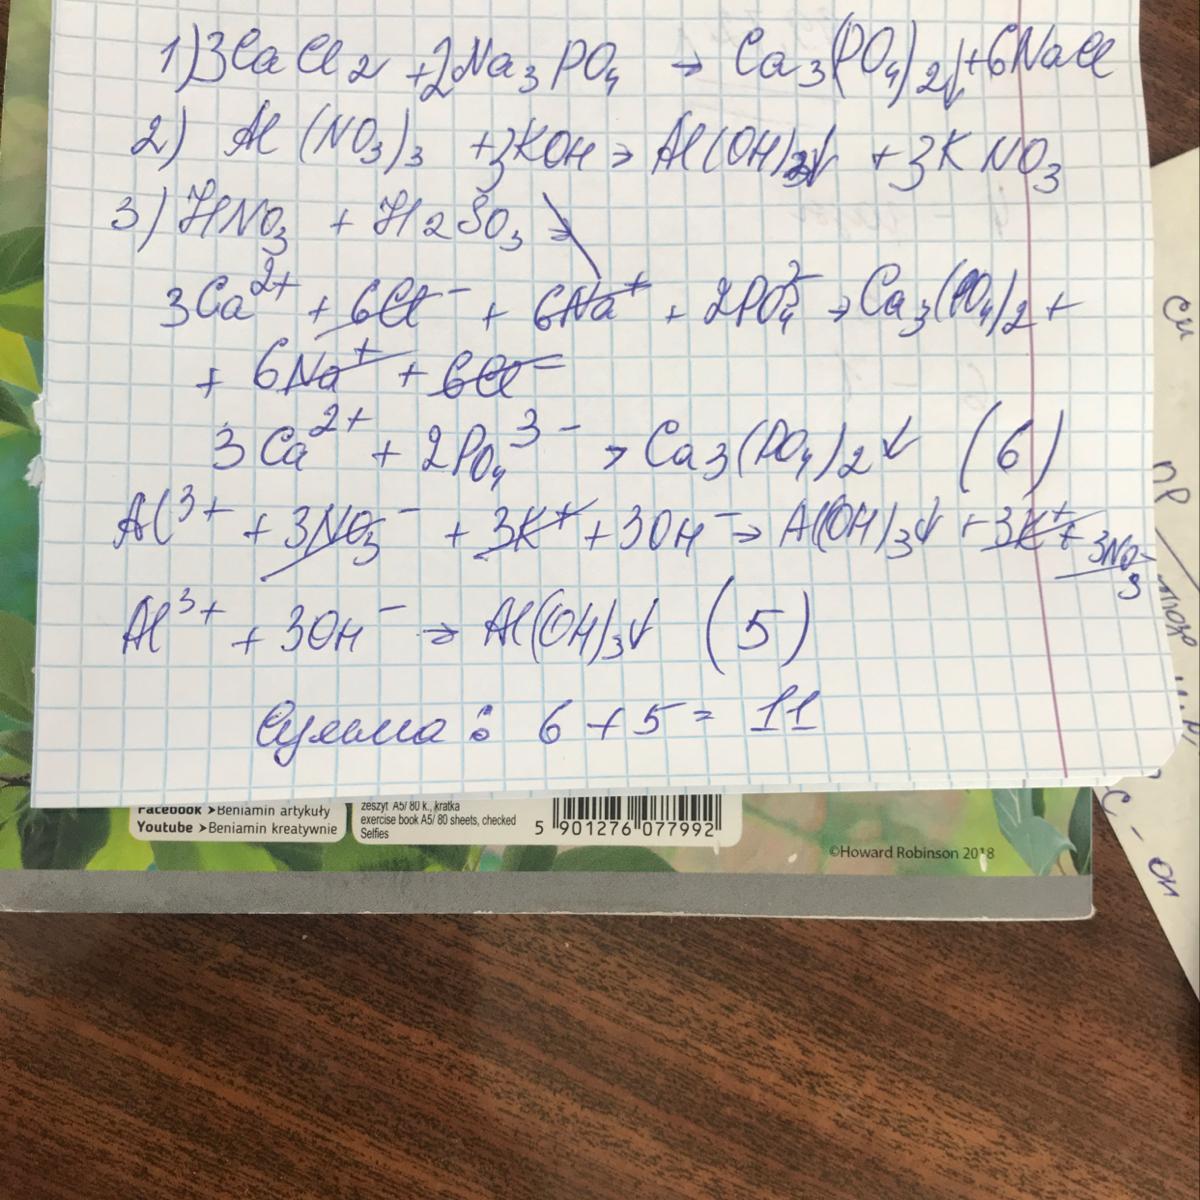 1) 3CaCl2 + 2Na3PO4 → Ca3(PO4)2↓ + 6NaCl
2) Al(NO3)3 + 3KOH → Al(OH)3↓ + 3KNO3
3) HNO3 + H2SO3
3Ca2+ + 6Cl- + 6Na+ + 2PO4 → Ca3(PO4)2 +
+ 6Na+ + 6Cl-
3Ca2+ + 2PO4 3- → Ca3(PO4)2↓ (6)
Al3+ + 3NO3- + 3K+ + 3OH- → Al(OH)3↓ + 3K+ + 3NO3-
Al3+ + 3OH- → Al(OH)3↓ (5)
Сумма: 6+5= 11
Facebook ➤Beniamin artykuły
Youtube ➤Beniamin kreatywnie
zeszyt A5/ 80 k., kratka
exercise book A5/ 80 sheets, checked
Selfies
5 901276 077992
©Howard Robinson 2018